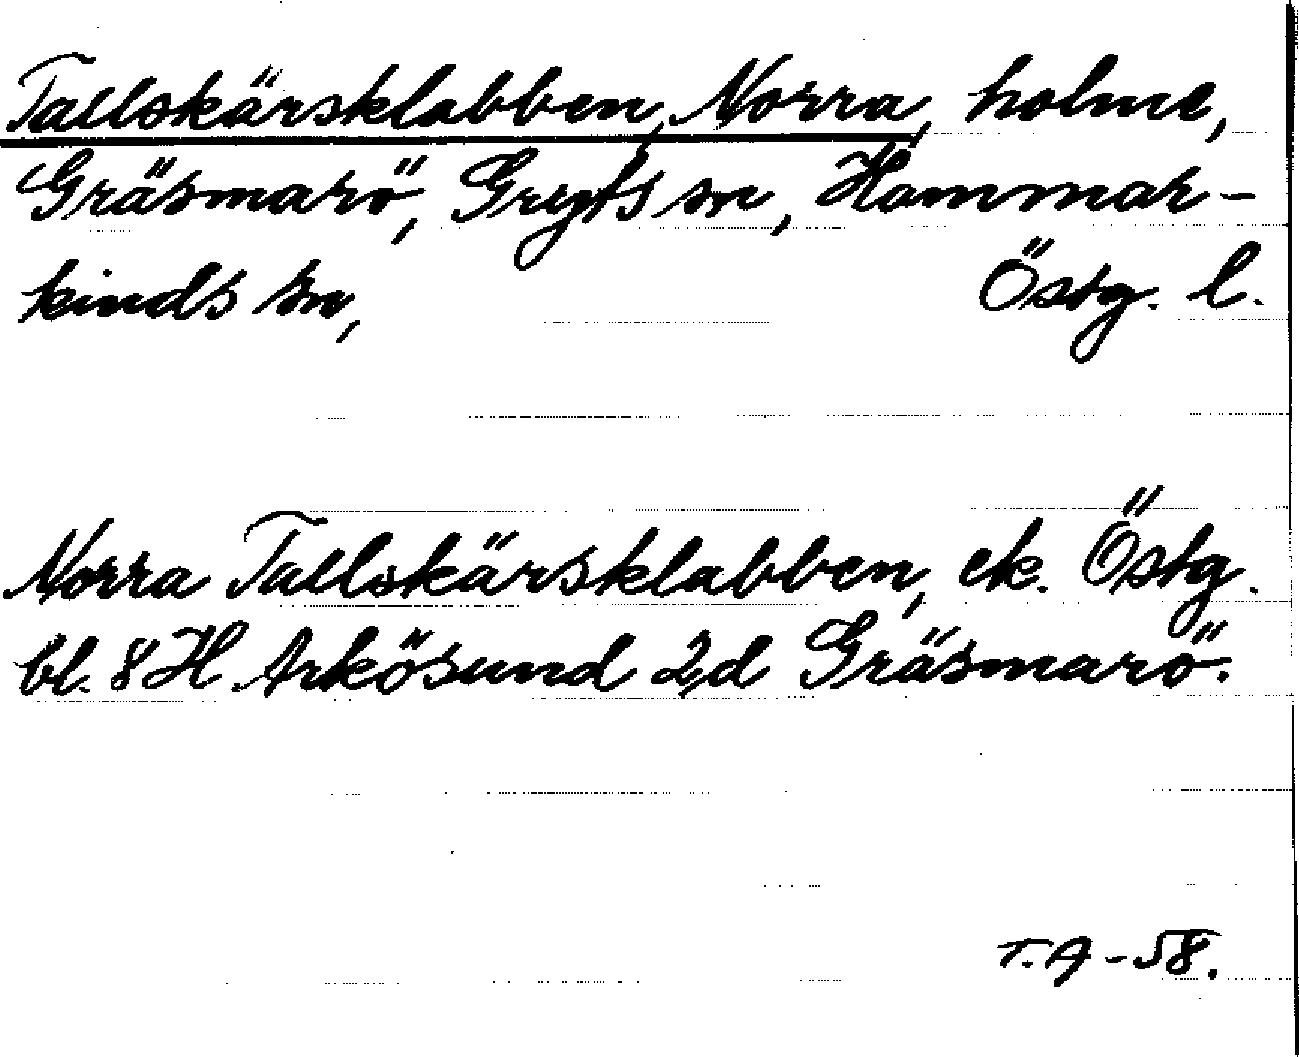 Tallskärsklabben, Norra, holme,
Gräsmarö, Gryts sn, Hammar-
kinds hd,
Östg. l.
Norra Tallskärsklabben, ek. Östg.
bl. 8 H Arkösund 2d Gräsmarö.
T.A -58.